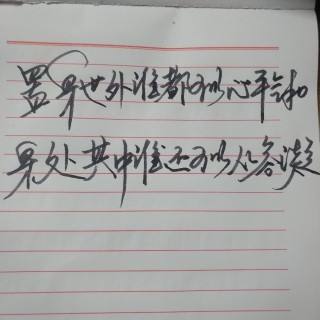 置身世外谁都可以心平气和
身处其中谁还可以从容淡定